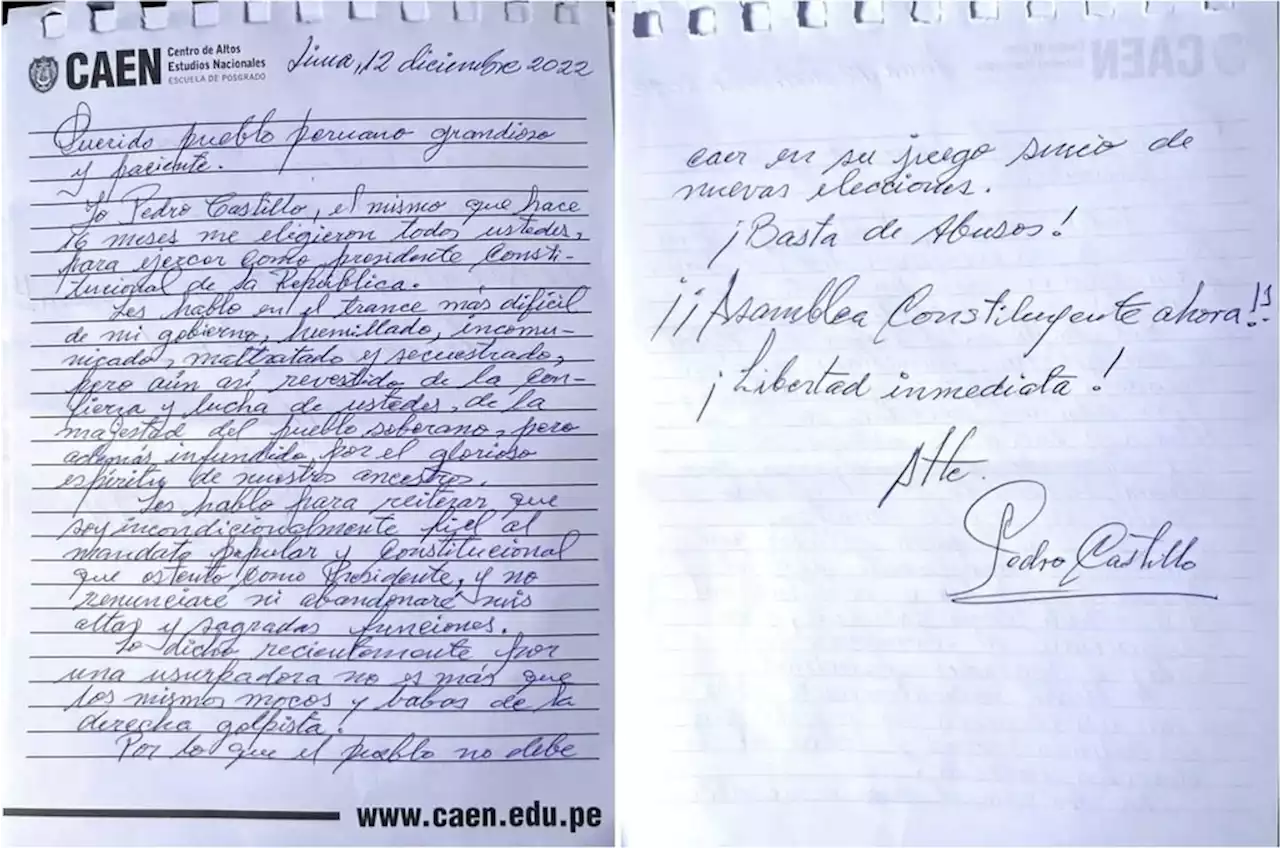 CAEN
Centro de Altos
Estudios Nacionales
ESCUELA DE POSGRADO
Lima, 12 diciembre 2022
Querido pueblo peruano grandioso
y paciente.
Yo Pedro Castillo, el mismo que hace
16 meses me eligieron todos ustedes,
para ejercer como presidente Consti-
tucional de la República.
Les hablo en el trance más difícil
de mi gobierno, humillado, incomu-
nicado, maltratado y secuestrado,
pero aún así revestido de la con-
fienza y lucha de ustedes, de la
majestad del pueblo soberano, pero
además infundido por el glorioso
espíritu de nuestros ancestros.
Les hablo para reiterar que
soy incondicionalmente fiel al
mandato popular y Constitucional
que ostento como Presidente, y no
renunciaré ni abandonaré mis
altas y sagradas funciones.
Lo dicho recientemente por
una usurpadora no es más que
los mismos mocos y babas de la
derecha golpista.
Por lo que el pueblo no debe
www.caen.edu.pe
caer en su juego sucio de
nuevas elecciones.
¡Basta de Abusos!
¡¡Asamblea Constituyente ahora!!
¡Libertad inmediata!
Atte.
Pedro Castillo